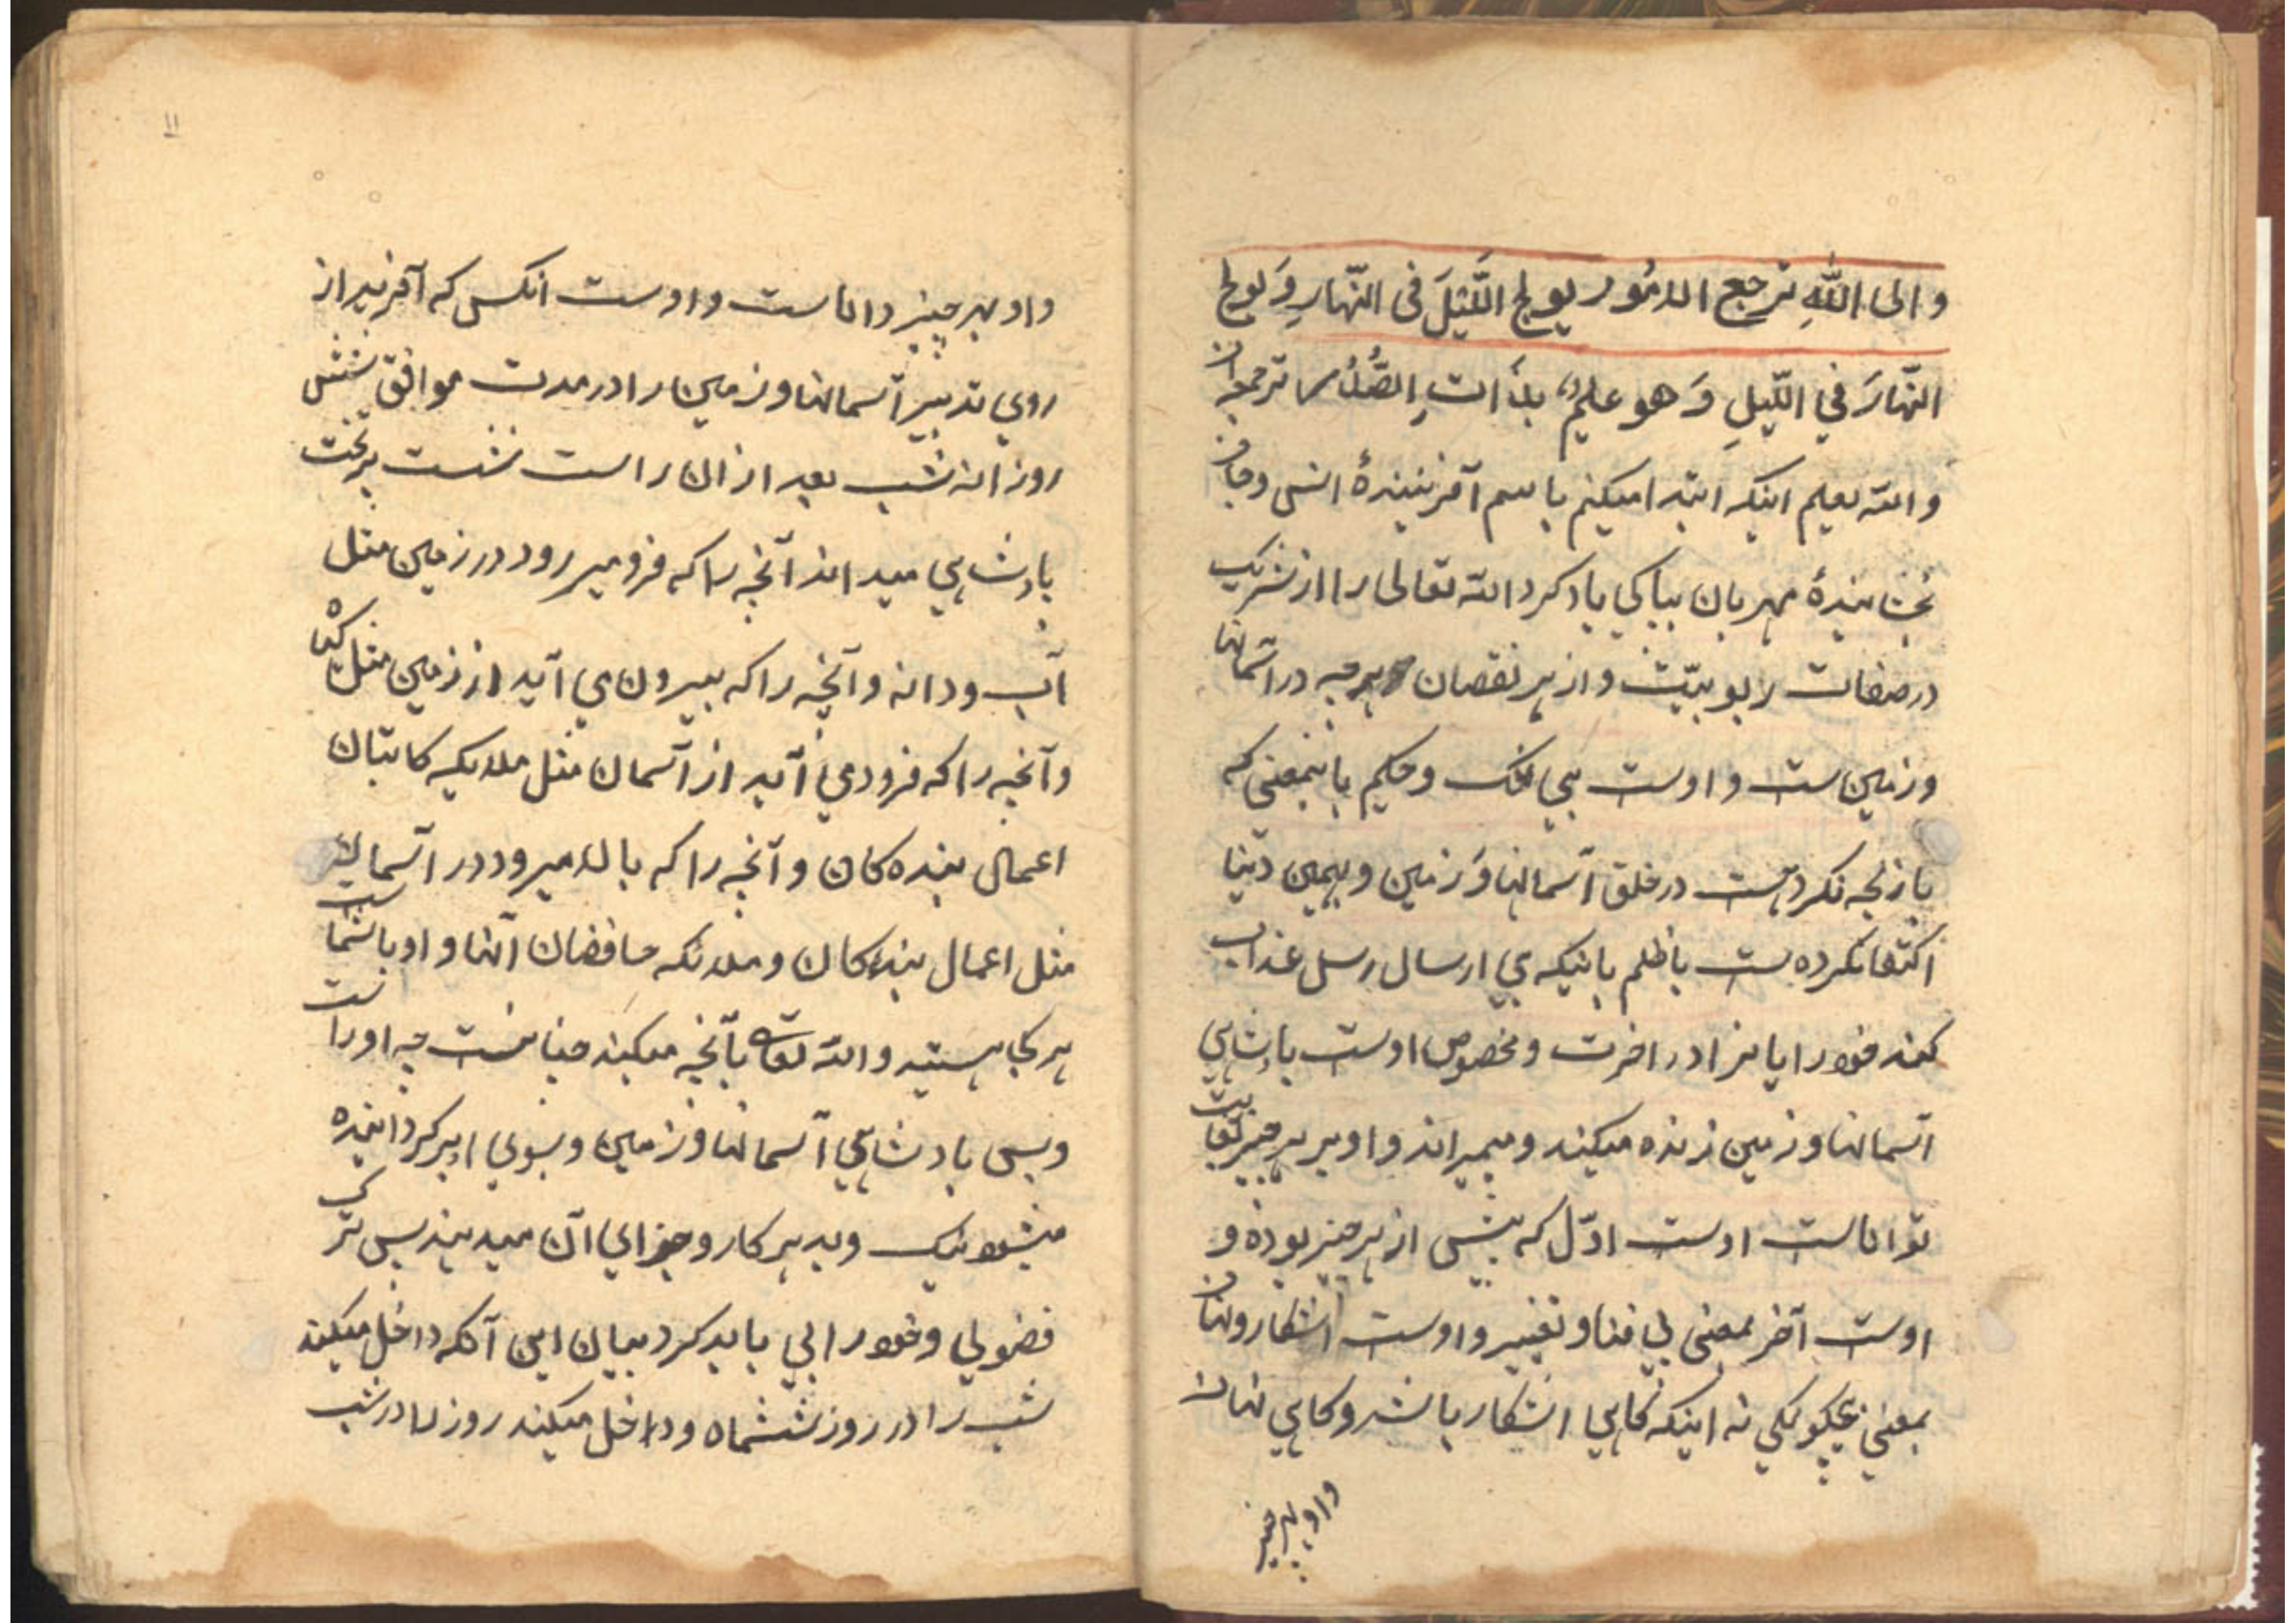 والی اللّٰهِ ترجع الامُور یولج اللَّیلَ فی النّهارِ وَیولج
النّهارَ فی اللّیلِ وَهو علیمٌ بذاتِ الصُّدُر ترجمه ان
والله یعلم اینکه ابتدا میکنم باسم آفریننده انس وجان
بخشایندهٔ مهربان بپاکی یاد کرد الله تعالی را از شریک
در صفات ربوبیّت و از هر نقصان هرچه در آسمانها
وزمین ست واوست بی شک وحکیم باینمعنی که
بازیچه نکردهست در خلق آسمانها وَزمین وبهمین دنیا
اکتفا نکرده ست باظلم باینکه بی ارسال رسل عذاب
کند در اخرت ومخصوص اوست بادشاهی
آسمانها وزمین زنده میکند ومیمیراند واو بر هر چیز بغایت
تواناست اوست اوّل که پیش از هر چیز بوده و
اوست آخر بمعنی بی فنا و تغییر واوست آشکار ونهان
بمعنی نه اینکه کاهی اشکار باشد وکاهی نهان
واو بهر چیز
۱۱
واو بهر چیز داناست واوست انکس که آفرید از
روی تدبیر آسمانها وزمین را در مدت موافق شش
روز انه شب بعد از ان راست نشست بر تخت
بادشاهی میداند آنچه را که فرو میرود در زمین مثل
آب ودانه وآنچه را که بیرون می آید از زمین مثل گیاه
وآنچه را که فرود می آید از آسمان مثل ملایکه کاتبان
اعمال بنده کان وآنچه را که بالا میرود در آسمان
مثل اعمال بندکان وملائکه حافضان آنها واو باشماست
هر کجا هستید والله تعا بآنچه میکنید بیناست چه اوراست
وبس بادشاهی آسمانها وزمین وبسوی او بر کردانیده
میشود نیک وبد هر کار وجزای آن میدهند پس ترک
فضولی وخود رایی باید کرد بیان این آنکه داخل میکند
شب را در روز ششماه وداخل میکند روز را در شب